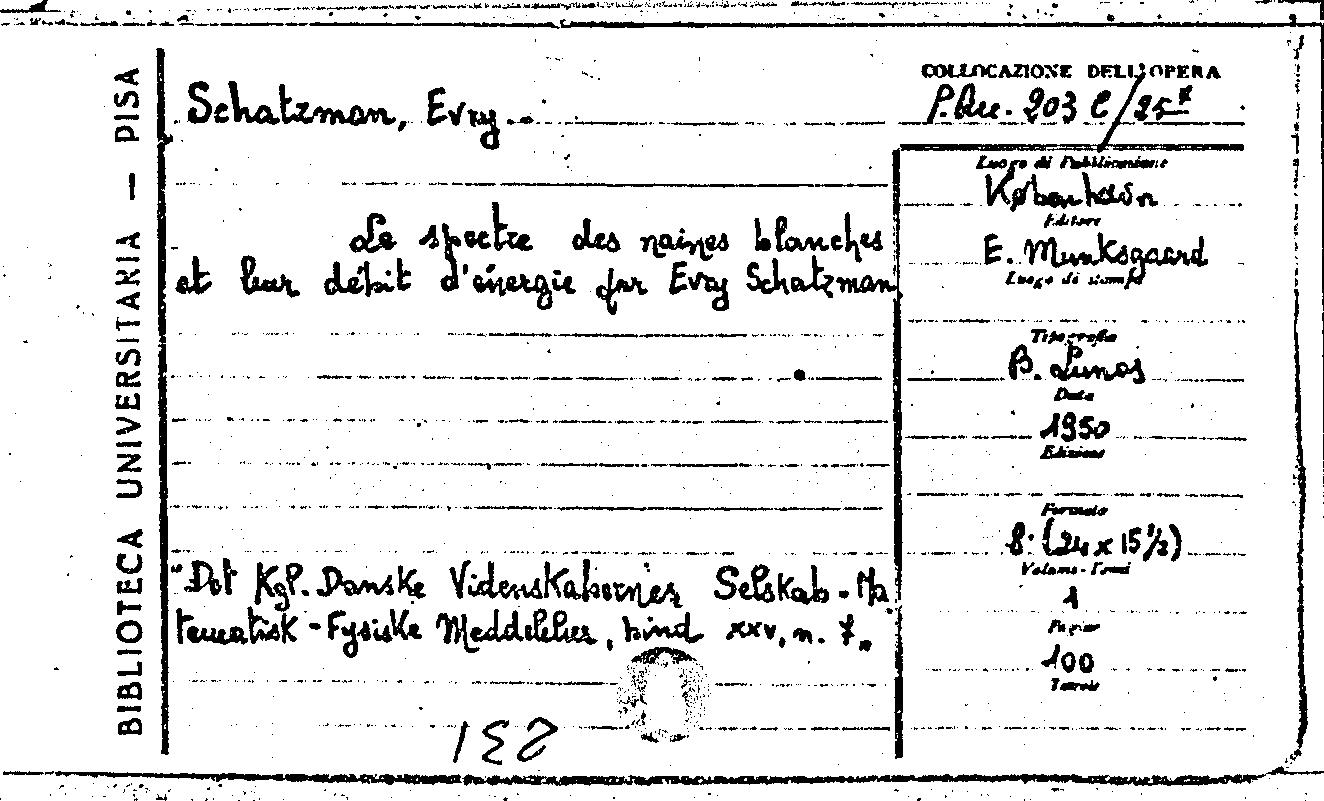 BIBLIOTECA UNIVERSITARIA — PISA
Schatzman, Evry..
Le spectre des naines blanches
et leur débit d'énergie par Evry Schatzman
"Det Kgl. Danske Videnskabernes Selskab - Ma
tematisk - Fysiske Meddelelser, bind XXV, n. 7„
COLLOCAZIONE DELL'OPERA
203 C/25
Luogo di Pubblicazione
København
Editore
E. Munksgaard
Luogo di stampa
Tipografia
B. Lunos
Data
1950
Edizione
Formato
8° (24 x 15 ½)
Volume - Tomi
1
Pagine
100
Tavole